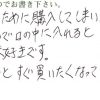 のでお書き下さい。
ために購入してしまい
で口の中に入れると
大好きです。
とすぐ買いたくなって